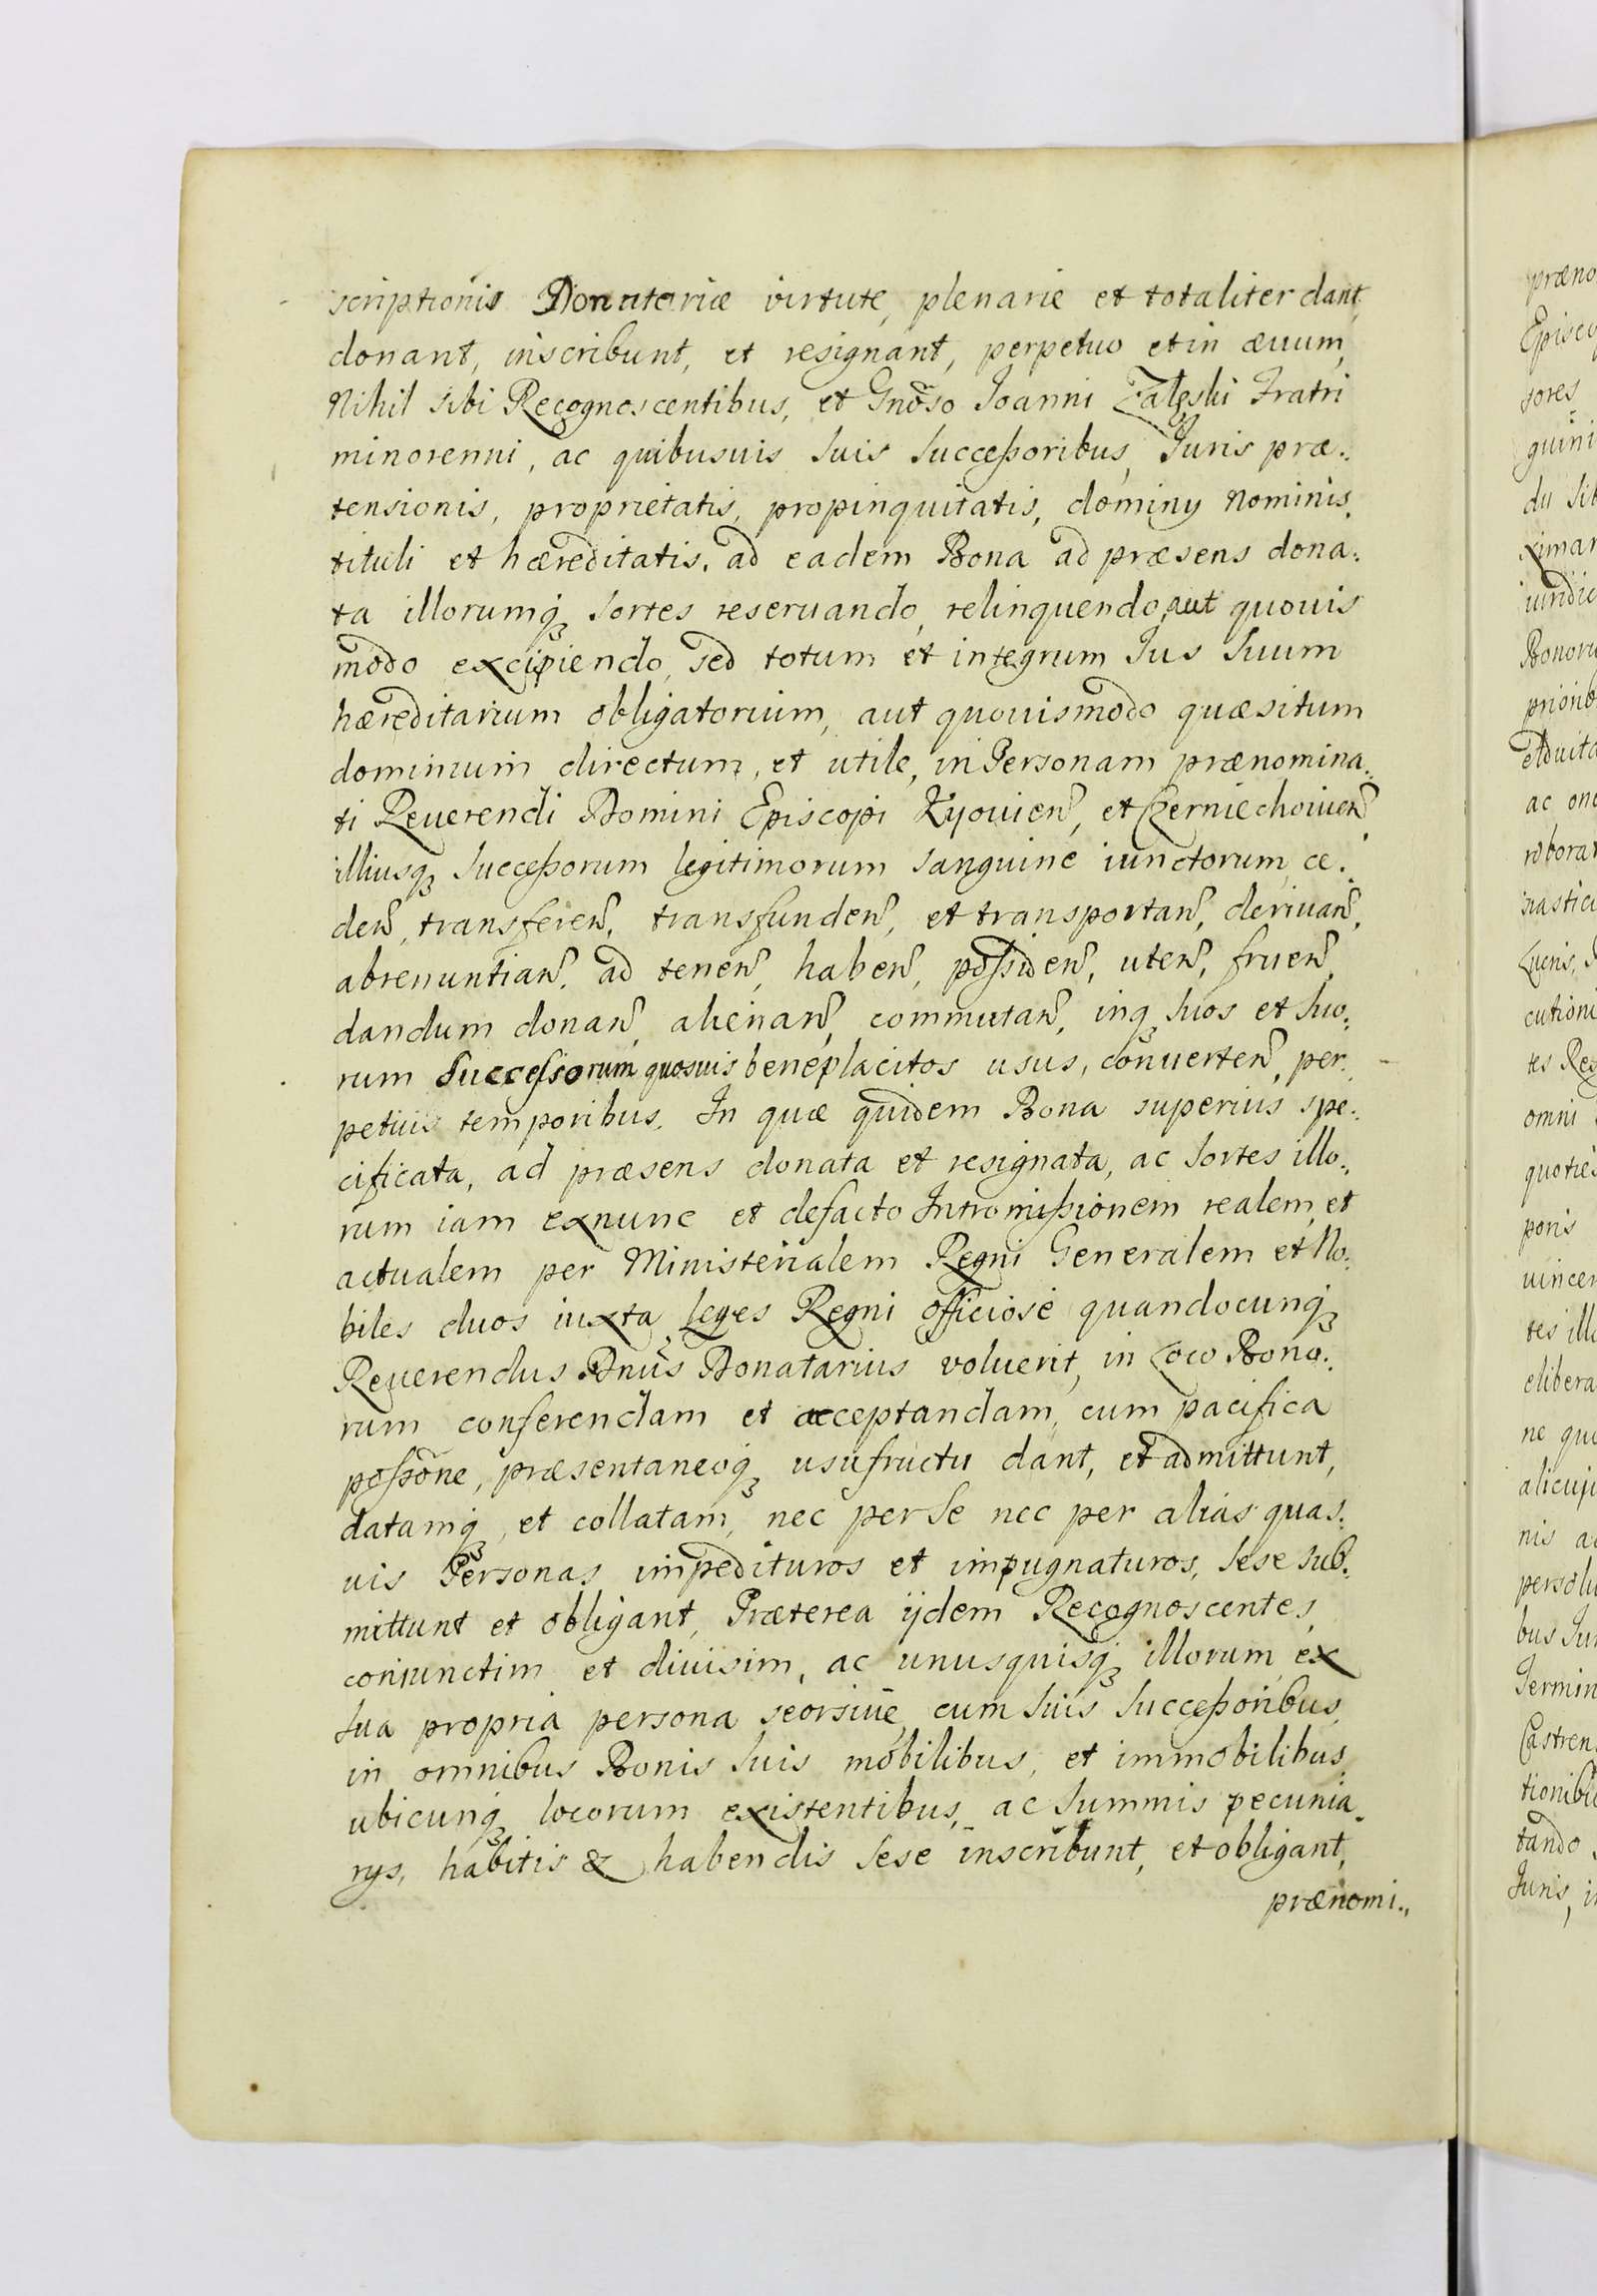 scriptionis Donatoriæ virtute, plenarie et totaliter dant,
donant, inscribunt, et resignant, perpetuo et in æuum,
Nihil sibi Recognoscentibus, et Gnõso Joanni Zaleski Fratri
minorenni, ac quibusuis suis successoribus, Juris præ..
tensionis, proprietatis, propinquitatis, dominy nominis,
tituli et hæreditatis, ad eadem Bona ad præsens dona..
ta illorumq₃ sortes reseruando, relinquendo, aut quouis
modo excipiendo, sed totum et integrum Jus suum
hæreditarium obligatorium, aut quouismodo quæsitum
dominium directum, et utile, in Personam prænomina..
ti Reuerendi Domini Episcopi Kyouień, et Czerniechouień
illiusq₃ successorum legitimorum sanguine iunctorum, ce..
deń, transfereń, transfundeń, et transportań, deriuań,
abrenuntiań, ad teneń, habeń, possideń, uteń, frueń,
dandum donań, alienań, commutań, inq₃ suos et suo..
rum successorum quosuis beneplacitos usus, conuerteń, per..
petuis temporibus. In quæ quidem Bona superius spe..
cificata, ad præsens donata et resignata, ac sortes illo..
rum iam exnunc et defacto Intromissionem realem, et
actualem per Ministerialem Regni Generalem et No..
biles duos iuxta Leges Regni officiose quandocunq₃
Reuerendus Dnus Donatarius voluerit, in Loco Bono..
rum conferendam et acceptandam, cum pacifica
possõne, præsentaneoq₃ usufructu dant, et admittunt,
datamq₃, et collatam, nec per se nec per alias quas..
uis Personas impedituros et impugnaturos, sese sub..
mittunt et obligant, Præterea ijdem Recognoscentes,
coniunctim et diuisim, ac unusquisq₃ illorum ex
sua propria persona seorsiue, cum suis successoribus,
in omnibus Bonis suis mobilibus, et immobilibus,
ubicunq₃ locorum existentibus, ac summis pecunia..
rys, habitis & habendis sese inscribunt, et obligant,
prænomi..
præno
Episco
sores
guini
du sib
ximar
iuridic
Bonoru
priorib
et duita
ac ono
roborar
cutioni
tes Rec
omni
quoties
poris
uincer
tes illo
elibera
ne qu
alicuju
nis a
persolu
bus Jur
Termin
Castren
tionibu
tando
Juris, i